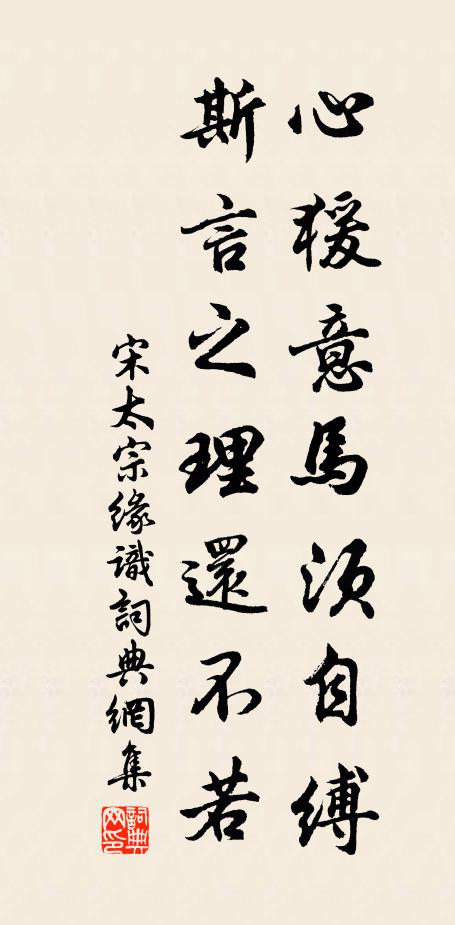 心猨意馬須自縛
斯言之理還不若
宋太宗緣識詞典網集
詞典網印